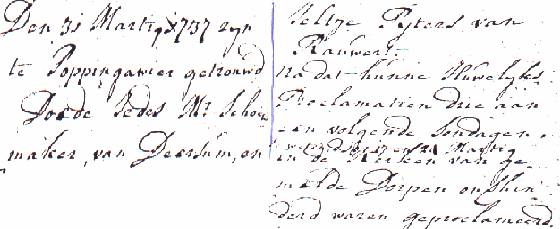 Den 31 Martij 1737 zijn
te Poppingawier getrouwd
Doede Sedes Mr Schoe
maker, van Deersum, en
Jeltje Pijters van
Rauwert.
na dat hunne Huwelijks
Proclamatien drie aan
een volgende Sondagen
17 en 24 Martij
in de Kerken van ge
melde Dorpen onghin
derd waren geproclameerd.